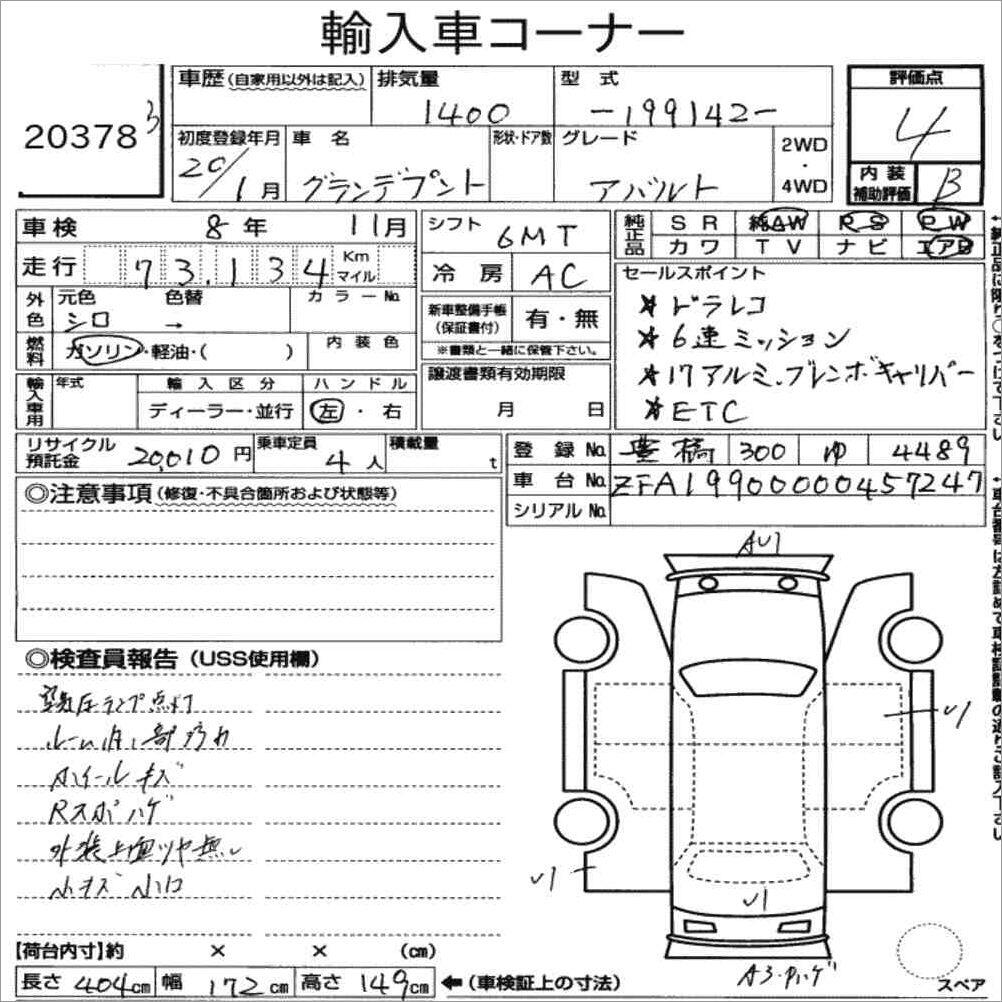 輸入車コーナー
20378 3
車歴(自家用以外は記入)
排気量
1400
型式
-199142-
評価点
4
初度登録年月
20/1月
車名
グランデプント
形状・ドア数
グレード
アバルト
2WD
・
4WD
内装
補助評価
B
車検 8年 11月
シフト
6MT
純正品
SR 純AW PS PW
カワ TV ナビ エアB
走行 73,134 Km マイル
冷房 AC
セールスポイント
★ドラレコ
★6速ミッション
★17アルミ、ブレンボキャリパー
★ETC
外色
元色 色替 カラーNo.
シロ →
新車整備手帳
(保証書付)
有・無
※書類と一緒に保管下さい。
燃料
ガソリン・軽油・( )
内装色
譲渡書類有効期限
月 日
輸入車用
年式
輸入区分
ハンドル
ディーラー・並行
左・右
リサイクル
預託金
20,010円
乗車定員
4人
積載量
t
登録No. 豊橋 300 ゆ 4489
車台No. ZFA19900000457247
シリアルNo.
◎注意事項(修復・不具合箇所および状態等)
◎検査員報告(USS使用欄)
空気圧ランプ点灯
ホイールキズ
Rスポハゲ
外装上面ツヤ無し
小キズ 小凹
AU1
U1
U1
U1
A3・Pハゲ
スペア
【荷台内寸】約 × × (cm)
長さ 404cm 幅 172cm 高さ 149cm ←(車検証上の寸法)